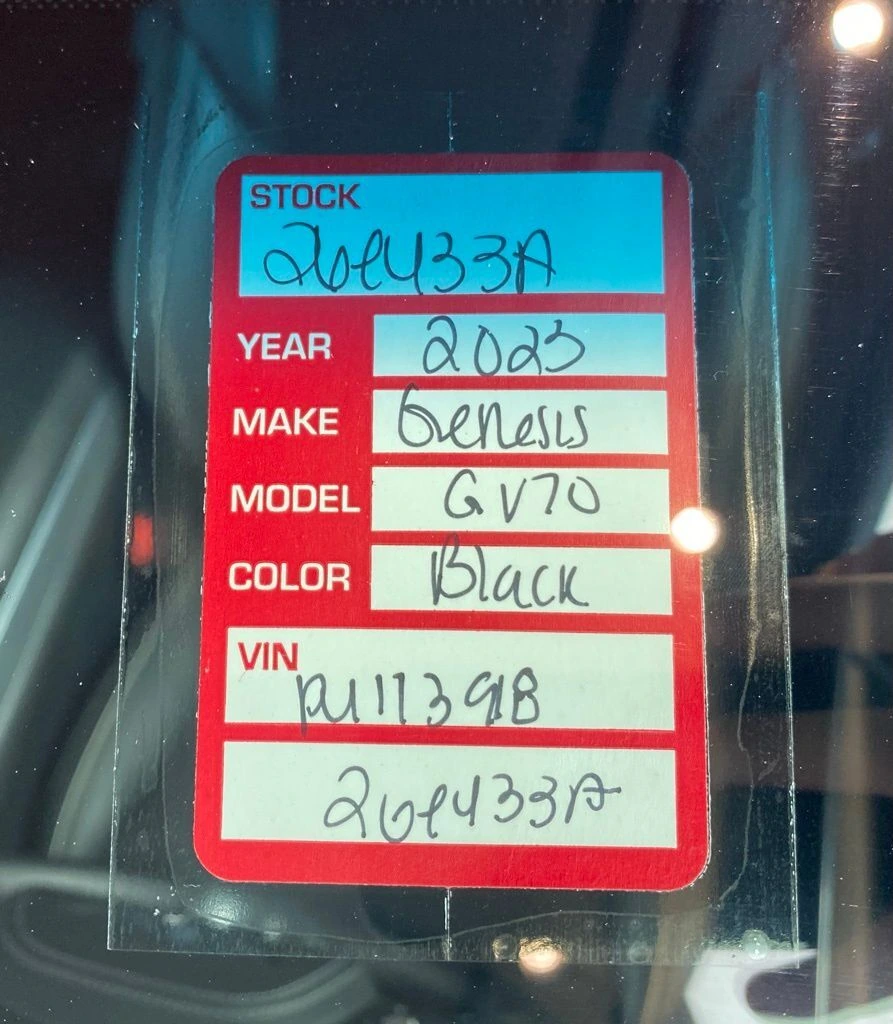 STOCK
26P433A
YEAR 2023
MAKE Genesis
MODEL GV70
COLOR Black
VIN
26P433A